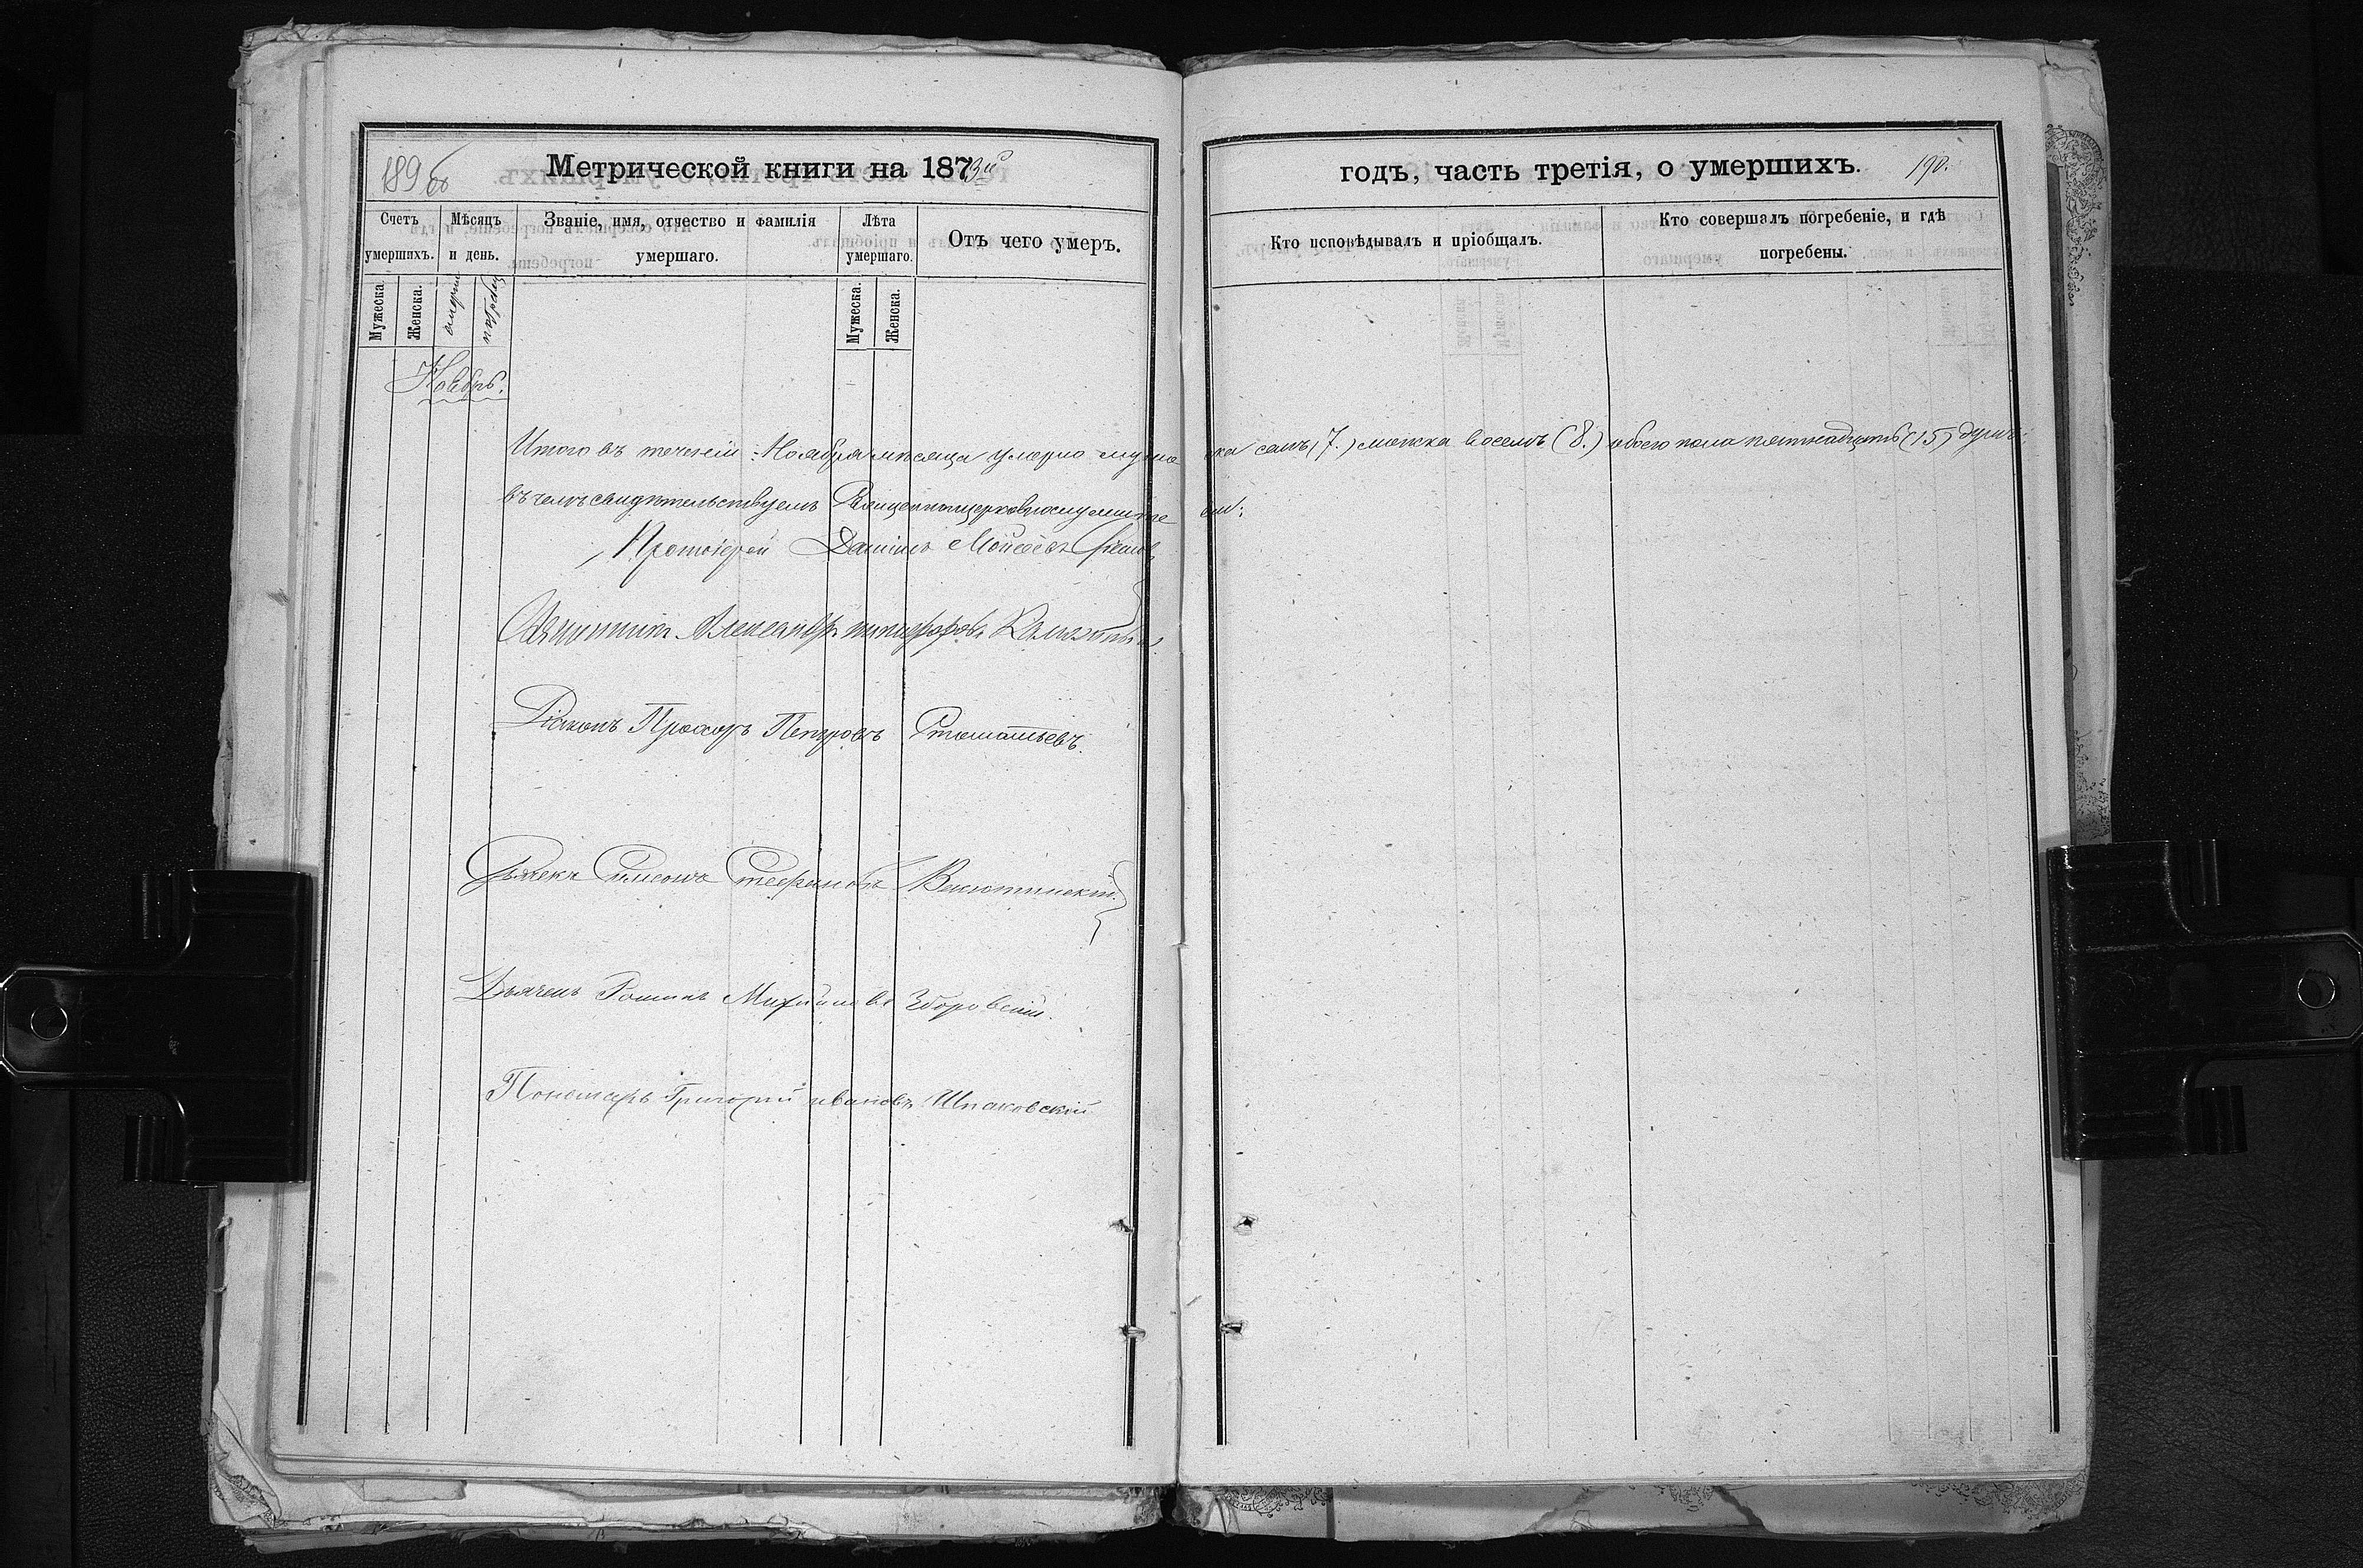 189 об
Метрической книги на 1873й годъ, часть третія, о умершихъ. 190.
Счетъ умершихъ.
Мѣсяцъ и день.
Званіе, имя, отчество и фамилія умершаго.
Лѣта умершаго.
Отъ чего умеръ.
Кто исповѣдывалъ и пріобщалъ.
Кто совершалъ погребеніе, и гдѣ погребены.
Мужеска.
Женска.
Мужеска.
Женска.
Ноябрь.
Итого въ теченіи Ноября мѣсяца умерло муже ска семь (7.) женска восемь (8.) обоего пола пятнадцать (15) душъ:
въ чемъ свидѣтельствуемъ Священноцерковнослужите ли:
Протоіерей Даніилъ Моѵсеевъ
Священникъ Александръ Никифоровъ
Діаконъ Прохоръ Петровъ Стоматьевъ.
Дьячекъ Симеонъ Стефановъ Васютинскій.
Дьячекъ Романъ Михайловъ Зборовскій.
Пономарь Григорій ивановъ Шпаковскій